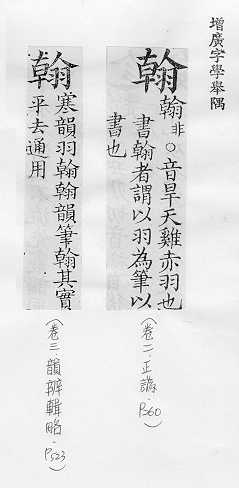 增廣字學舉隅
翰
翰非○音旱天雞赤羽也
書翰者謂以羽為筆以
書也
(卷二.正譌.P360)
翰
寒韻羽翰翰韻筆翰其實
平去通用
(卷三.韻辨輯略.P523)